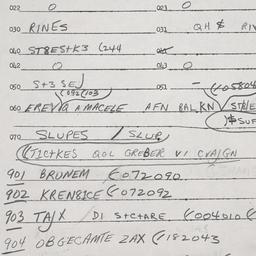 022 O 023 O
030 RINES 031 QH $ RIV
040 ST8ESTK3 (244
042 O 043 O
050 S+3 SEJ 051 — (05804
(092(103
060 EREV A AMACELE AFN BALKN / ST8/E
$SUF
070 SLUPES / SLUP
(TICTKES QOL GREBER VI CVAIGN
901 BRUNEM (072090
902 KRENBICE (072092
903 TAJX / DI S+C+ARE. (004010 (
904 OBGECAMTE ZAX (182043